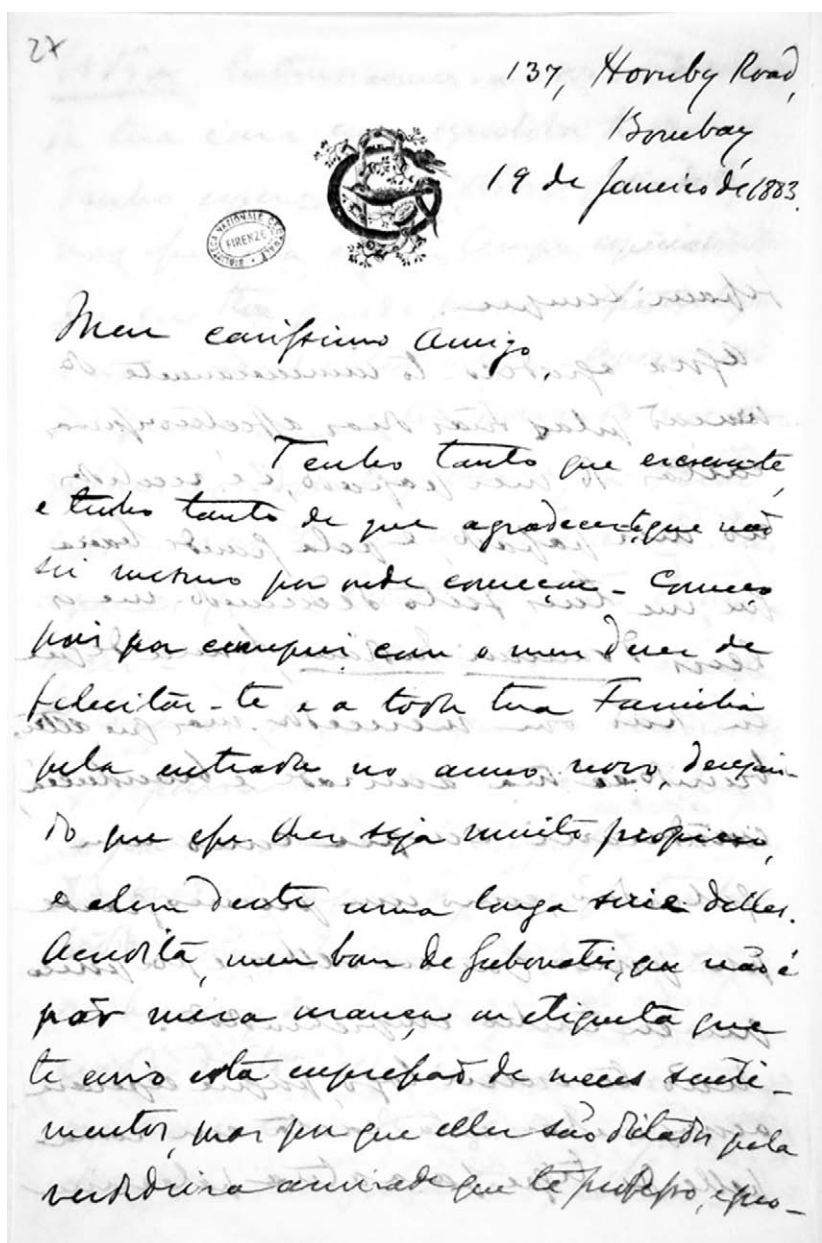 27
137, Hornby Road,
Bombay
19 de Janeiro de 1883.
BIBLIOTECA NAZIONALE CENTRALE
FIRENZE
Meu carissimo Amigo,
Tenho tanto que escrever-te,
e tenho tanto de que agradecer-te, que não
sei mesmo por onde começar - Começo
pois por cumprir com o meu dever de
felicitar-te e a toda tua Familia
pela entrada no anno novo, desejan-
do que esse lhes seja muito propicio,
e alem deste uma larga serie delles.
Acredita, meu bom de Gubernatis, que não é
por mera usança ou etiqueta que
te envio esta expressão de meus senti-
mentos, mas por que elles são dictados pela
verdadeira amizade que te professo, e pro-